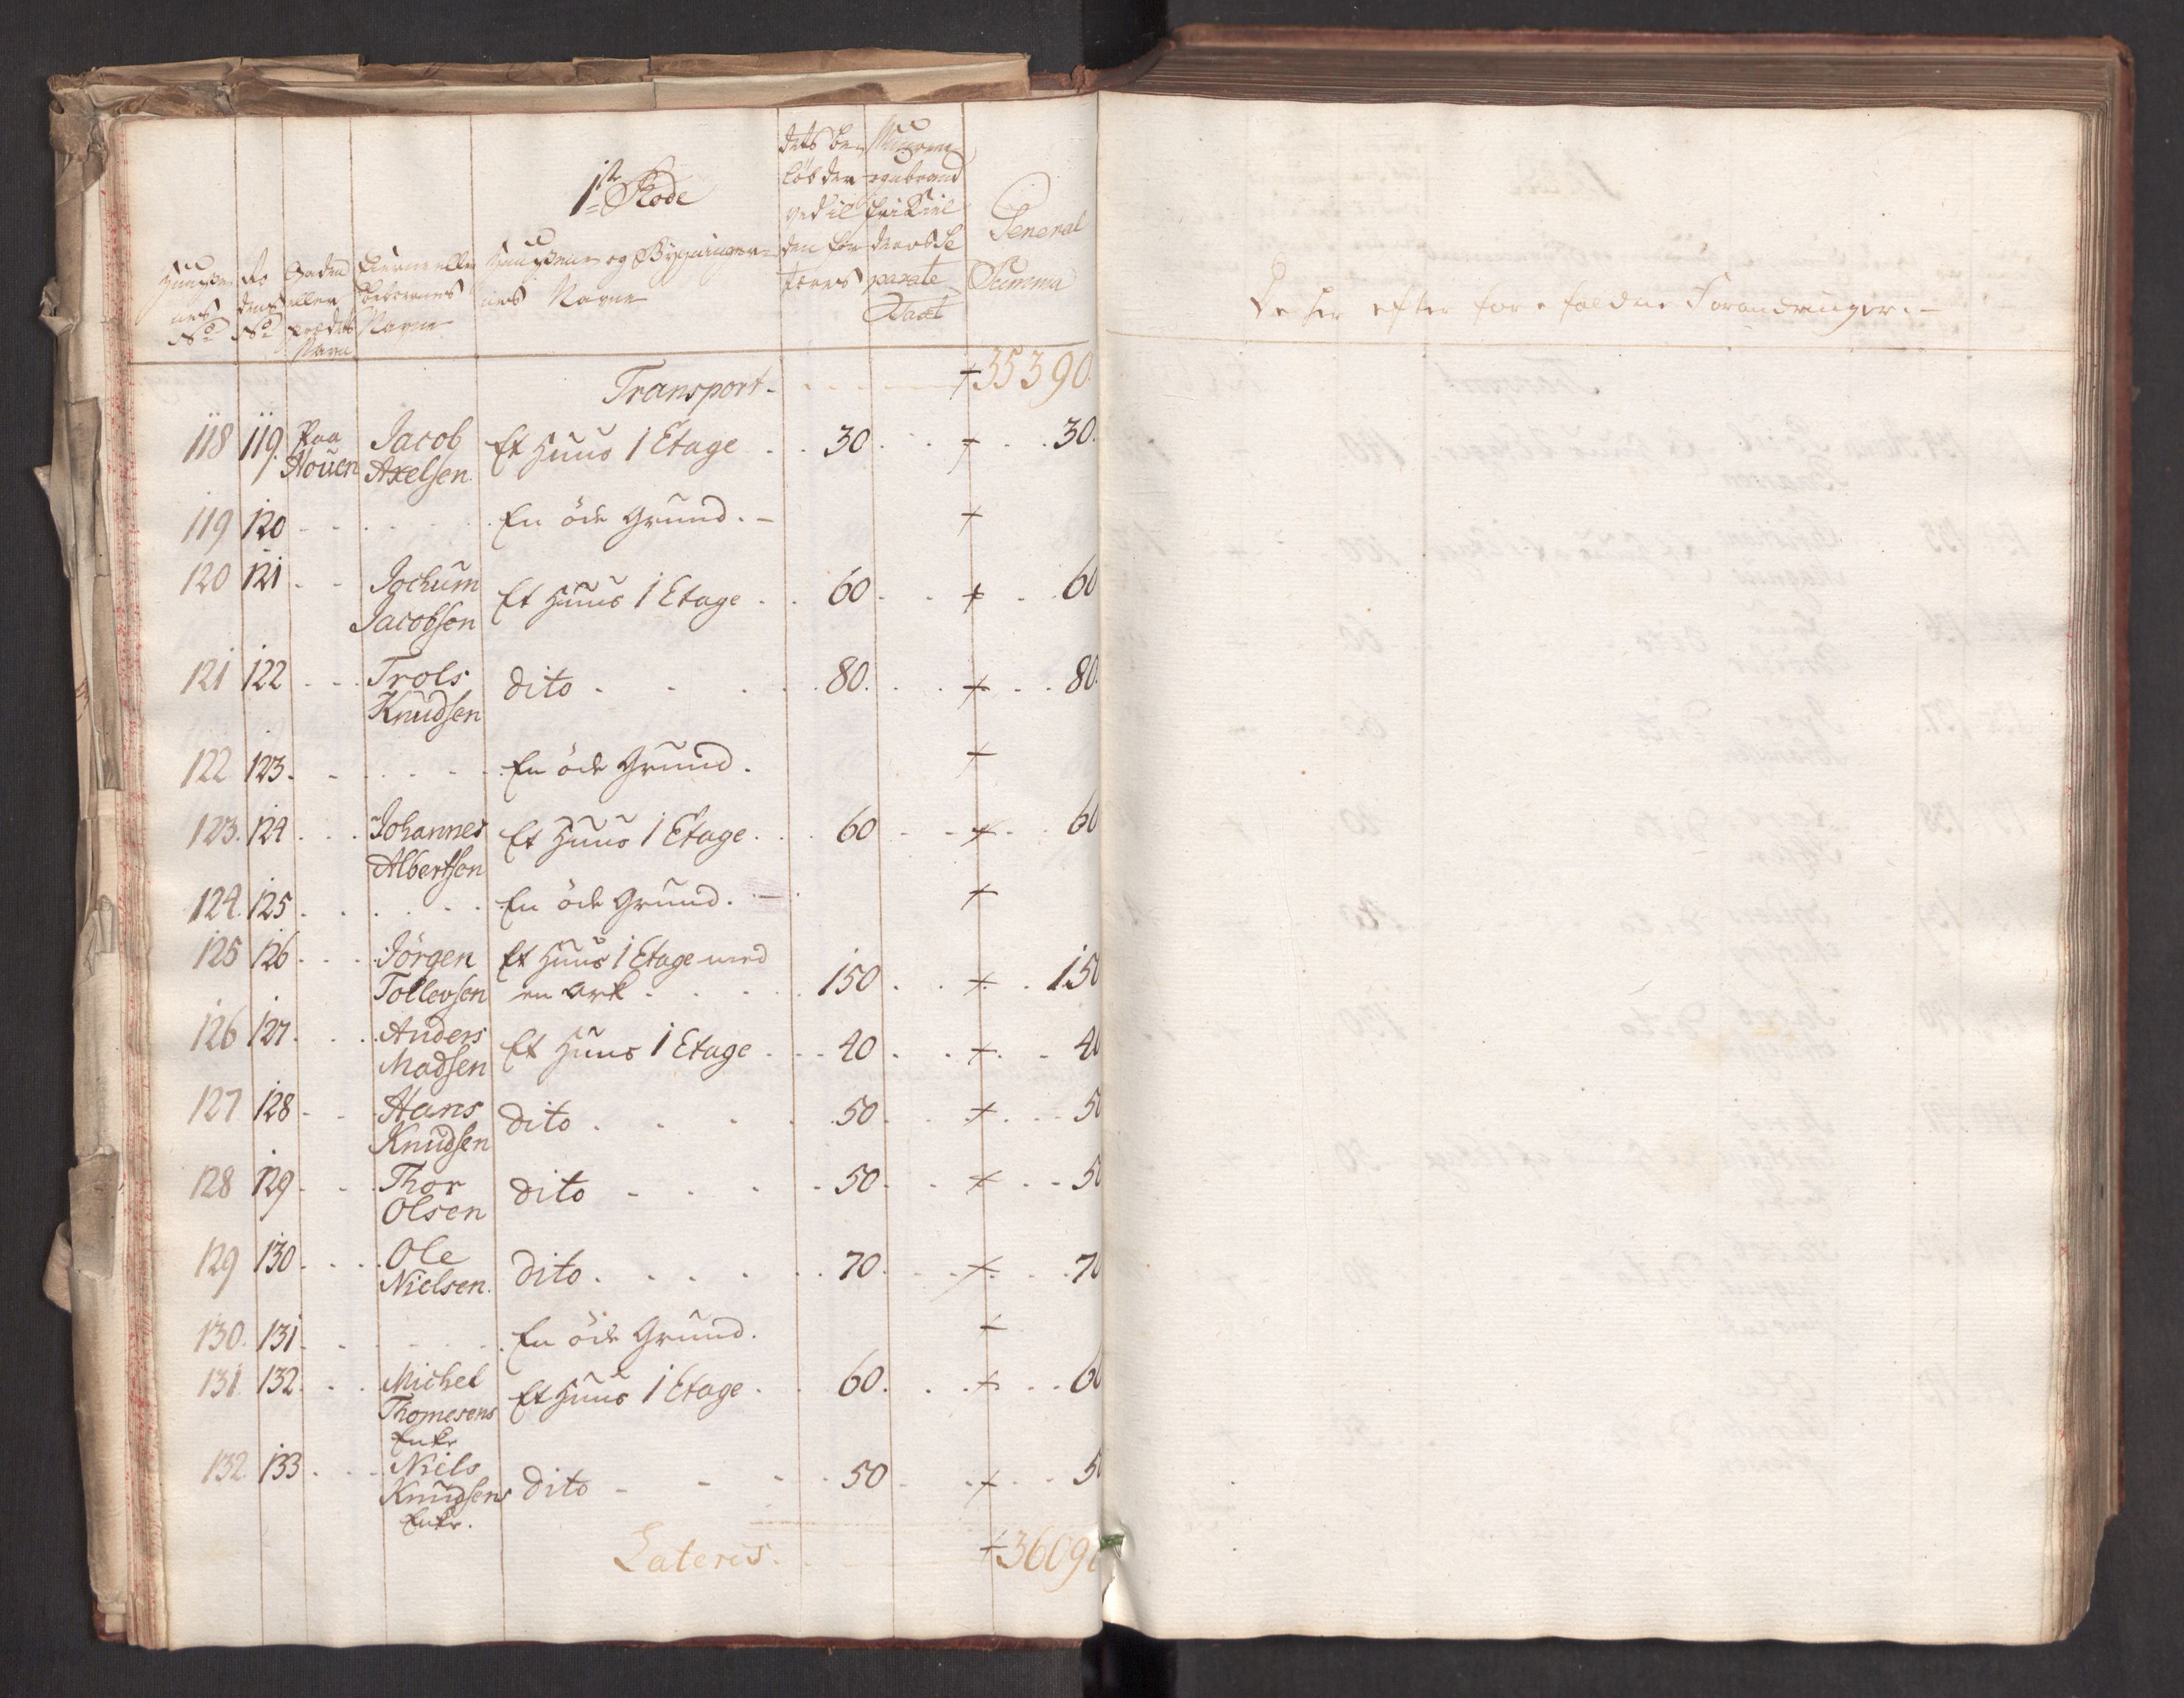 1ste Rode
Huusenes No
Rodens No
Gaden eller Stædets Navn
Eierne eller Beboernes Navne
Huusene og Bygningernes Navne
dets beløb der ved ilden for
General Summa
Transport - 35390.
118 119. Paa Houen Jacob Axelsen Et Huus 1 Etage . . 30 . . + . . 30.
119 120 - - . . . . En öde Grund. - +
120 121 . - Jochum Jacobsen Et Huus 1 Etage . . 60 . . + . . 60
121 122 . - . Trols Knudsen dito . . . . 80. . . + . . 80.
122 123. . . . . . En öde Grund. +
123. 124 . . . Johannes Albertsen Et Huus 1 Etage . . 60 . - + . . 60
124. 125 . . . . . En öde Grund. - +
125 126 . . . Jörgen Tollevsen Et Huus 1 Etage med en Ark . . . 150 . . + . . 150
126 127. . . Anders Madsen Et Huus 1 Etage . . . 40 . . + . . 40
127 128 - - . Hans Knudsen dito . . . . 50 . . + . . 50
128 129 . - . Thor Olsen dito - . . . - 50 . . + . . 50
129 130 . . . Ole Nielsen. dito . . . . . 70 . . + . . 70
130. 131 . . . . . En öde Grund. +
131 132 . . . Michel Thomesens Enke Et Huus 1 Etage . . 60. . . + . . 60
132 133 . . . Niels Knudsens Enke. dito - - . . 50 . . + . . 50
Lateris. . - 36090
De her efter forefaldne Forandringer. -